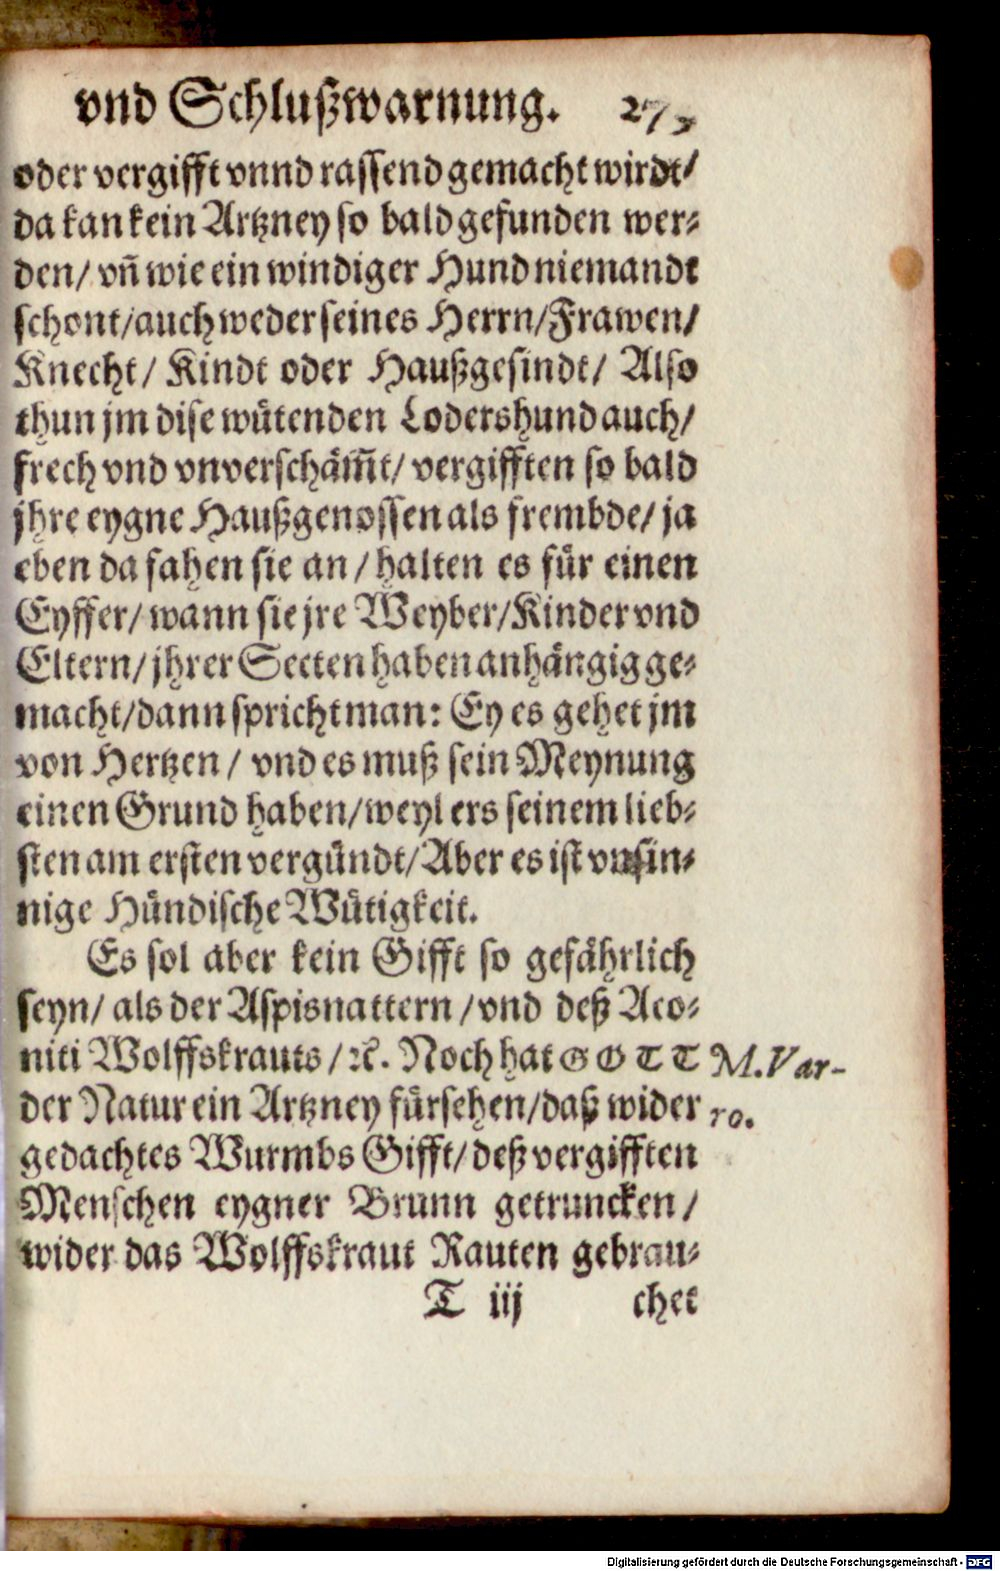 vnd Schlußwarnung. 275
oder vergifft vnnd rassend gemacht wirdt/
da kan kein Artzney so bald gefunden wer⸗
den/ vñ wie ein windiger Hund niemandt
schont/auch weder seines Herrn/Frawen/
Knecht/ Kindt oder Haußgesindt/ Also
thun jm dise wütenden Lodershund auch/
frech vnd vnverschäm̃t/ vergifften so bald
jhre eygne Haußgenossen als frembde/ ja
eben da fahen sie an / halten es für einen
Eyffer/ wann sie jre Weyber/Kinder vnd
Eltern/ jhrer Secten haben anhängig ge⸗
macht/dann spricht man: Ey es gehet jm
von Hertzen / vnd es muß sein Meynung
einen Grund haben/weyl ers seinem lieb⸗
sten am ersten vergündt/Aber es ist vnsin⸗
nige Hündische Wütigkeit.
Es sol aber kein Gifft so gefährlich
seyn/ als der Aspisnattern / vnd deß Aco⸗
niti Wolffskrauts / ꝛc. Noch hat GOTT
der Natur ein Artzney fürsehen/daß wider
gedachtes Wurmbs Gifft/ deß vergifften
Menschen eygner Brunn getruncken /
wider das Wolffskraut Rauten gebrau⸗
T iij chet
M. Var-
ro.
Digitalisierung gefördert durch die Deutsche Forschungsgemeinschaft - DFG